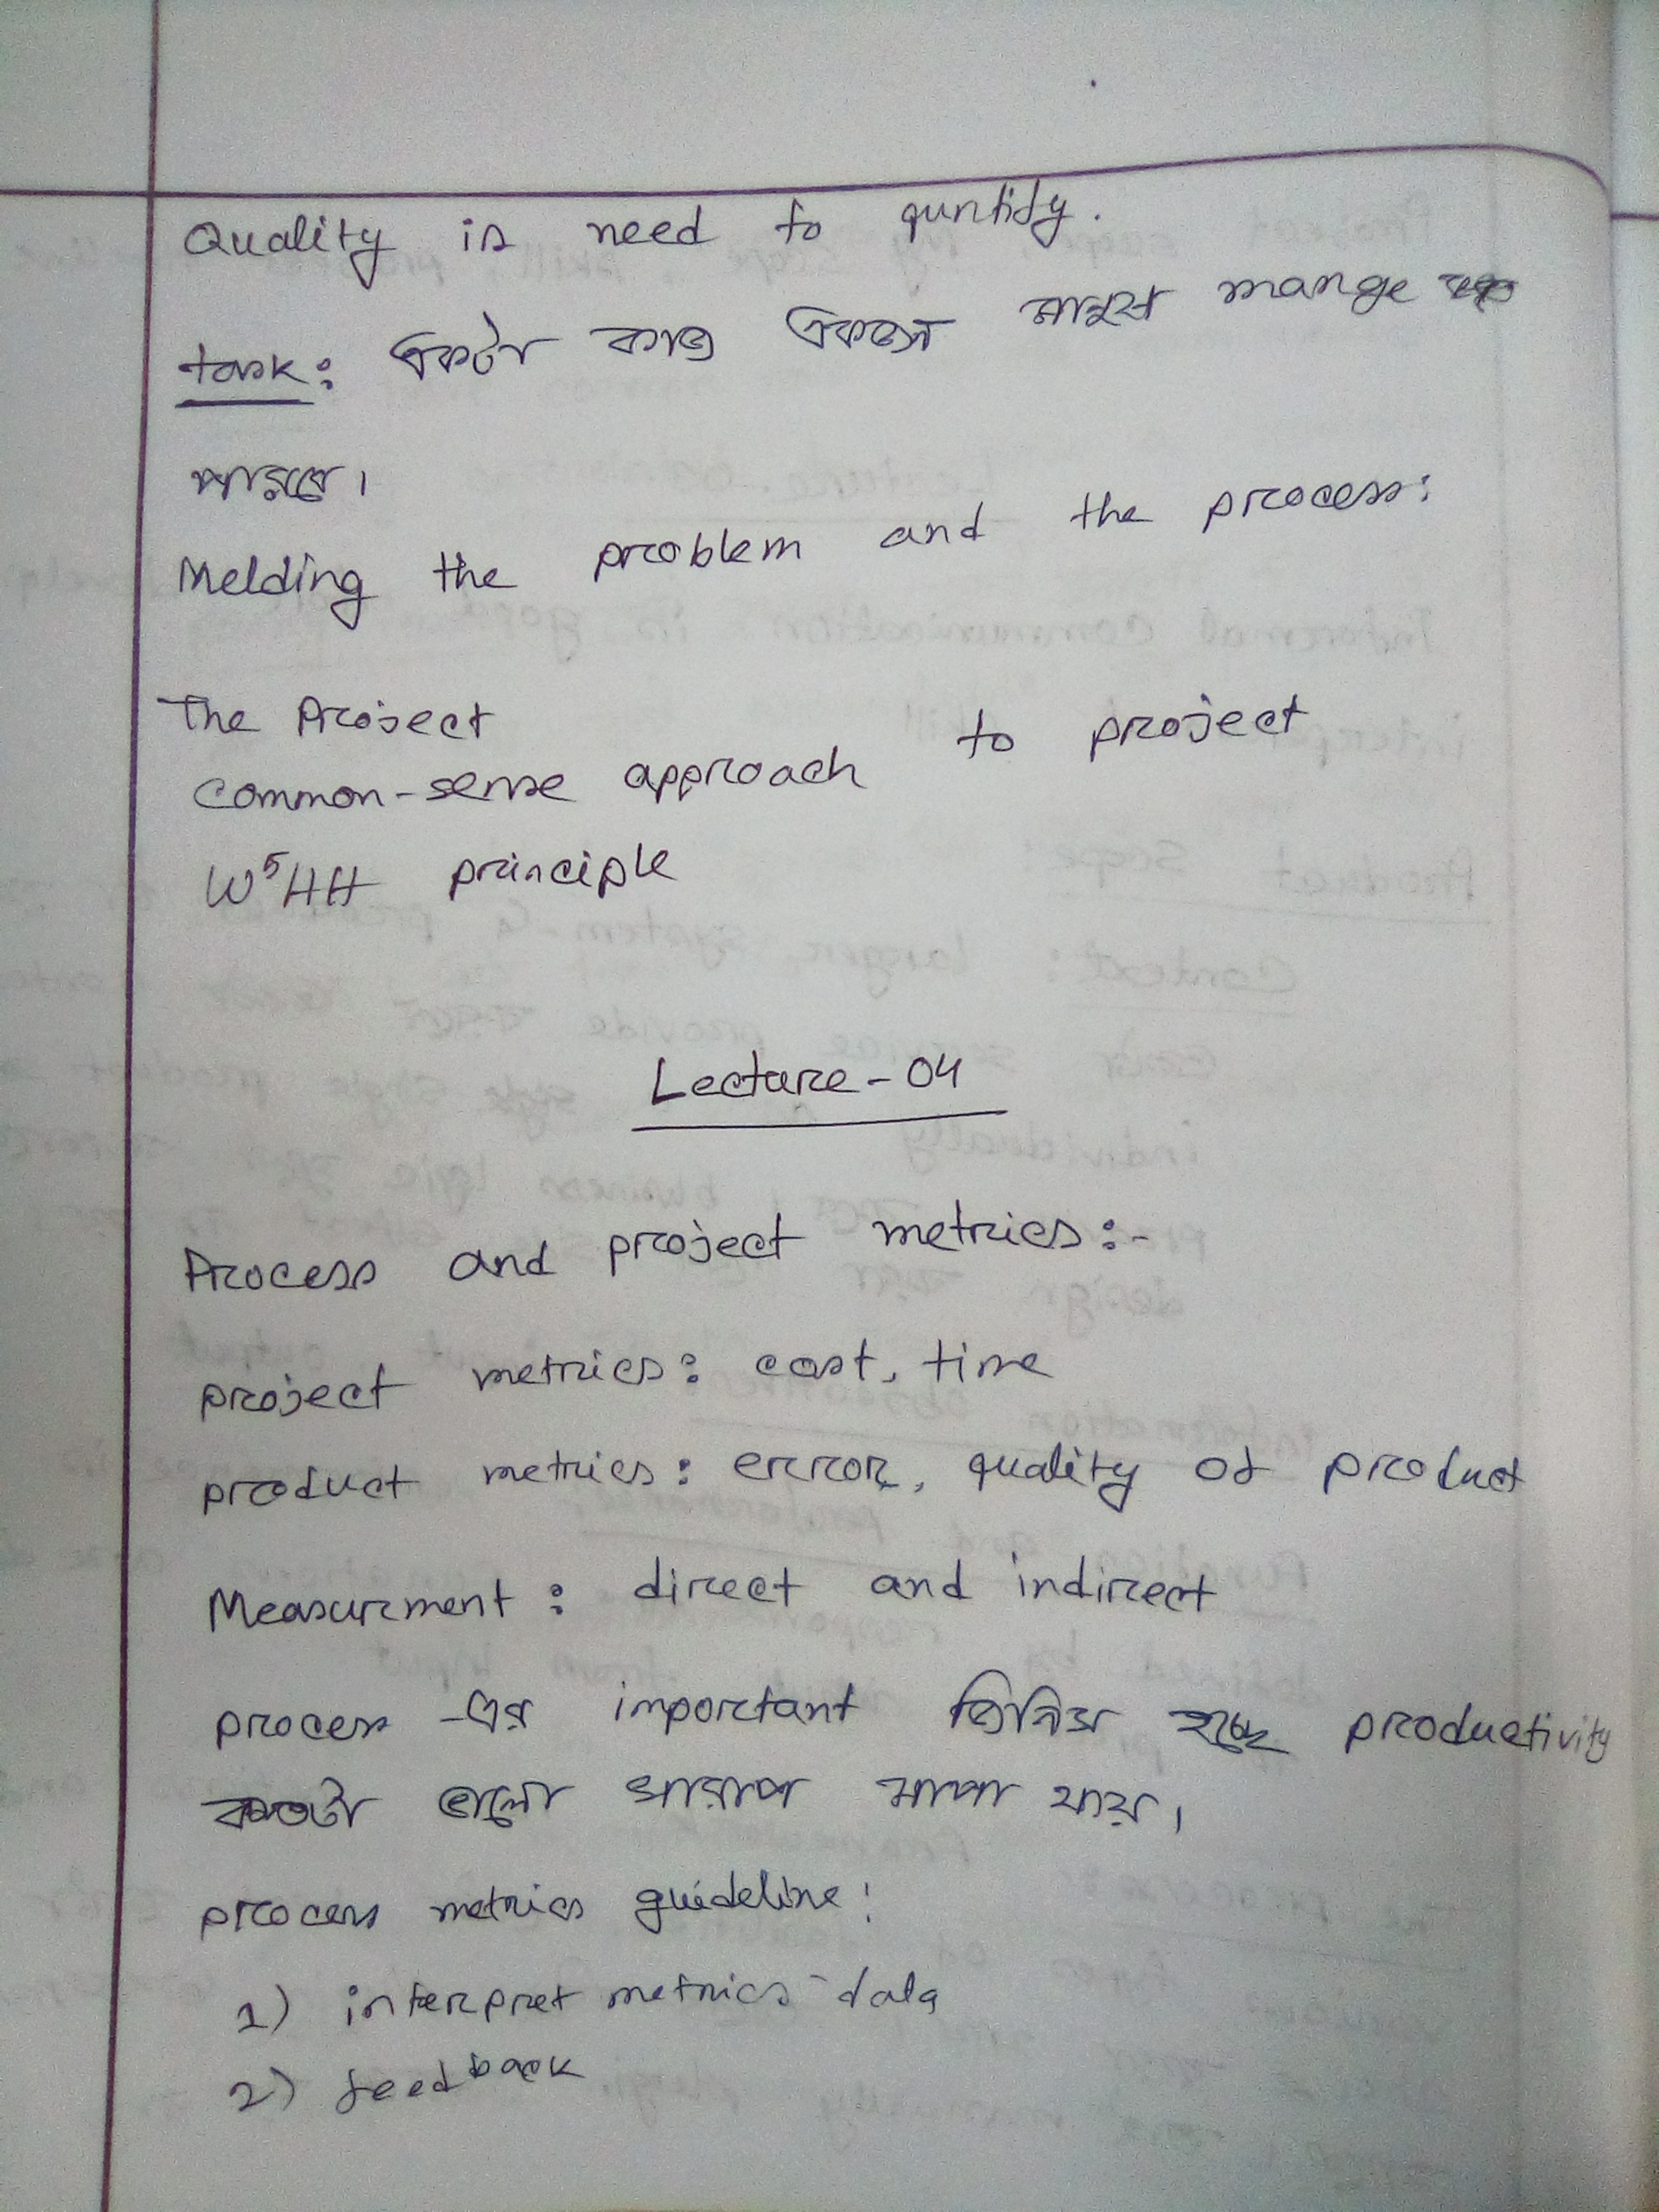 Quality is need to quntify.
task: একটা কাজ একজন মানুষ mange
পারবে।
Melding the problem and the process:
The Project
common-sense approach to project
W⁵HH principle
Lecture-04
Process and project metrics:-
project metrics: cost, time
product metrics: error, quality of product
Measurment: direct and indirect
process -এর important জিনিস হচ্ছে productivity
কতটা ভালো খারাপ মাপা যায়।
process metrics guideline:
1) interpret metrics data
2) feedback